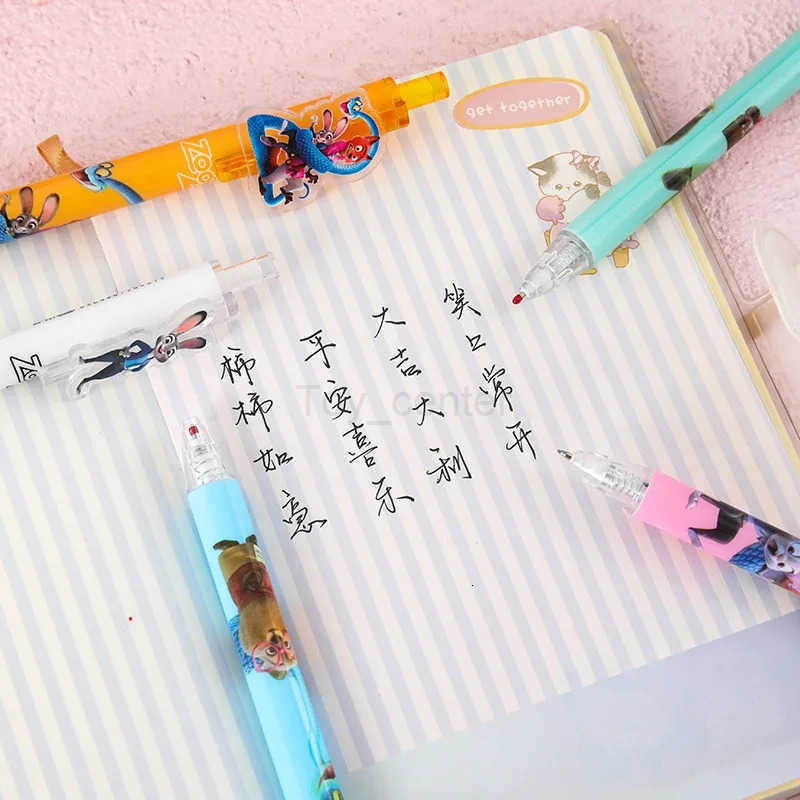 get together
笑口常开
大吉大利
平安喜乐
柿柿如意
Toy_center